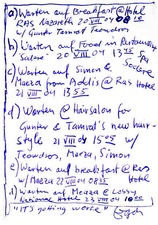 a) Warten auf Breakfast @ Hotel
RAS Nazareth 20 VIII 04 08
w/ Gunter Tamrat Teodros
b) Warten auf Food in Restaurant
20 VIII 04 13
c) Warten auf Simon &
Maeza from Addis @ Ras Hotel
21 VIII 04 13
d) Warten @ Hairsalon for
Gunter & Tamrat's new hair-
style 21 VIII 04 15 w/
Teowdros, Marza, Simon
e) Warten auf breakfast @ Ras
Hotel
w/ 22 VIII 04 08
d) Warten auf Meaza @ Lobby
National Hotel 23 VIII 04 10
"IT'S getting worse"